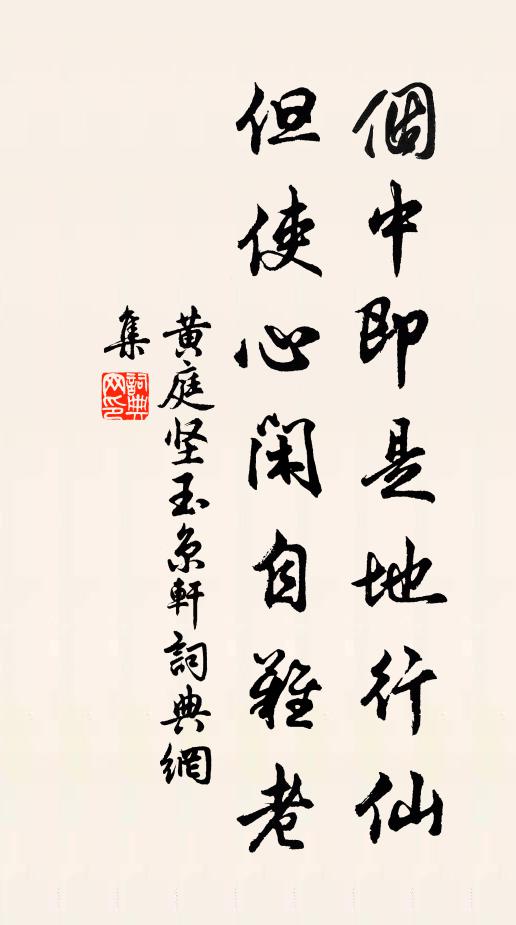 個中即是地行仙
但使心閑自難老
黄庭坚玉京軒詞典網
集
詞典網印